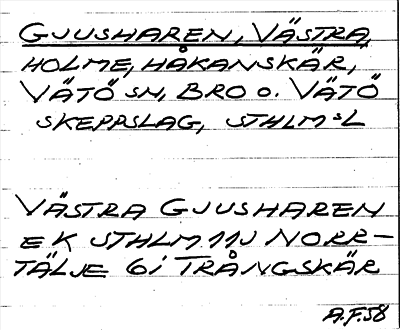 GJUSHAREN, VÄSTRA
HOLME, HÅKANSKÄR,
VÄTÖ SN, BRO O. VÄTÖ
SKEPPSLAG, STHLMSL
VÄSTRA GJUSHAREN
E K STHLM 11J NORR-
TÄLJE 6i TRÅNGSKÄR
A.F.58